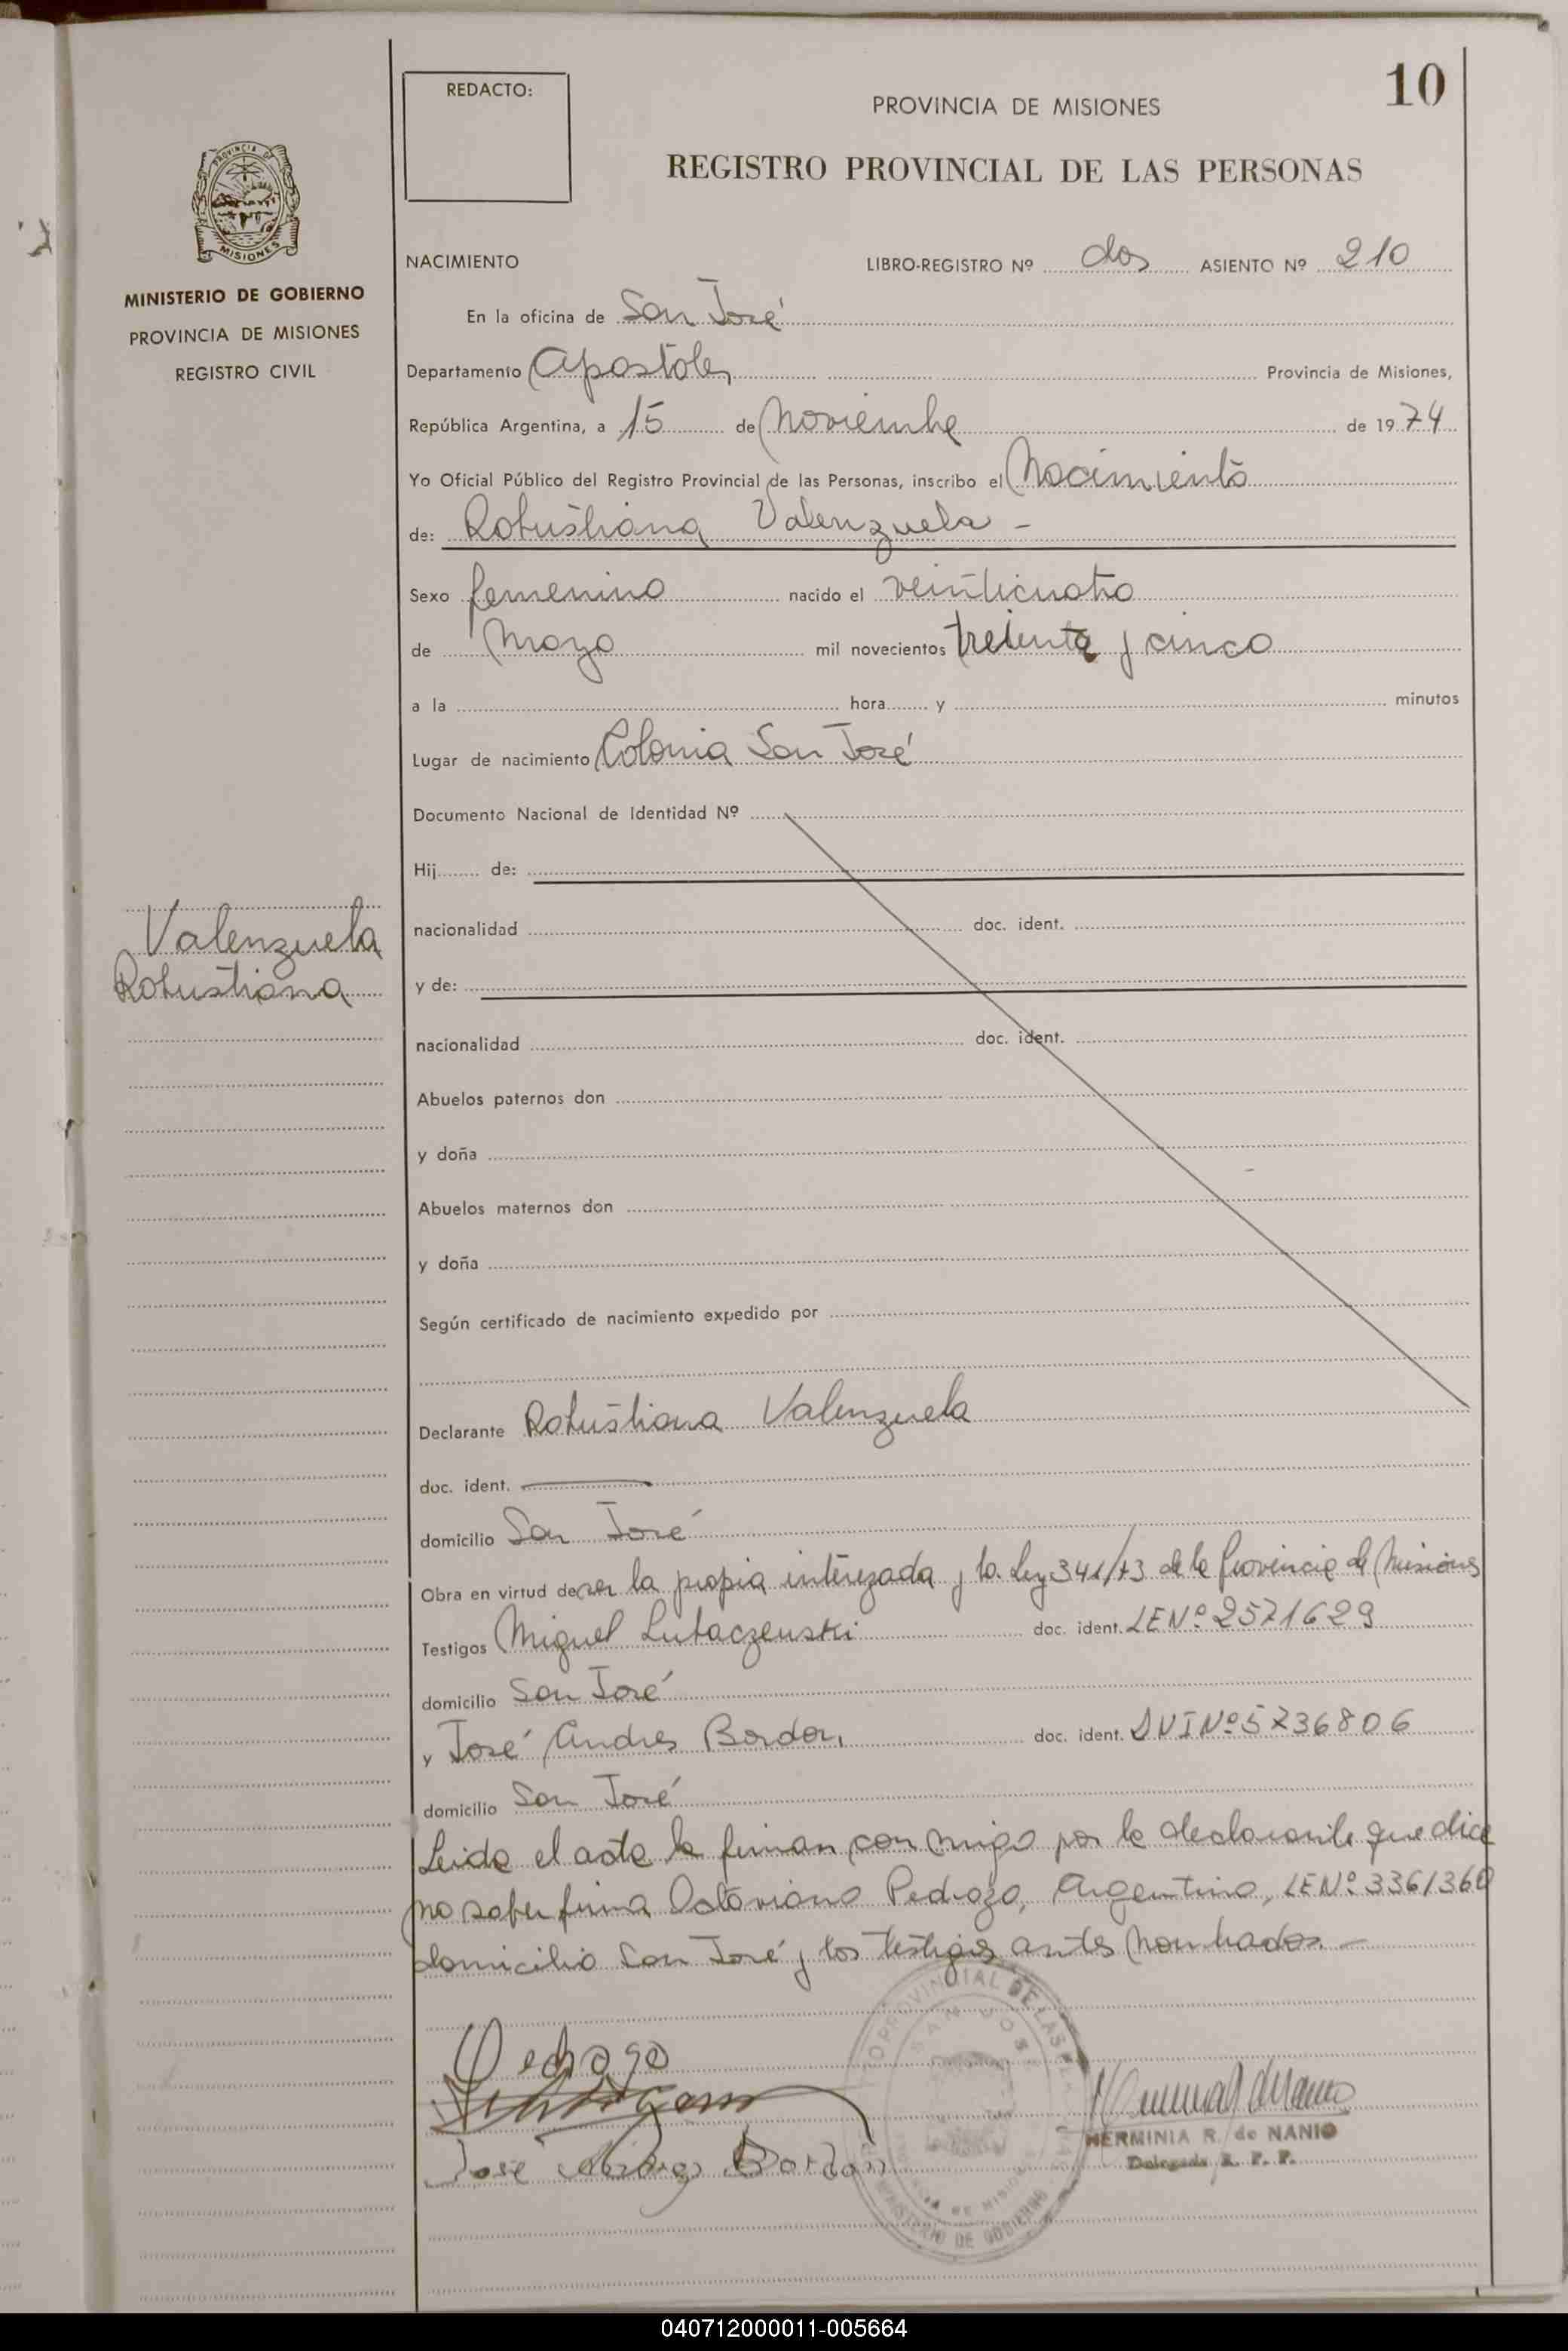 10
REDACTO:
PROVINCIA DE MISIONES
REGISTRO PROVINCIAL DE LAS PERSONAS
PROVINCIA DE
MISIONES
MINISTERIO DE GOBIERNO
PROVINCIA DE MISIONES
REGISTRO CIVIL
NACIMIENTO LIBRO-REGISTRO Nº dos ASIENTO Nº 210
En la oficina de San José
Departamento Apostoles Provincia de Misiones,
República Argentina, a 15 de Noviembre de 1974
Yo Oficial Público del Registro Provincial de las Personas, inscribo el Nacimiento
de: Robustiana Valenzuela -
Sexo femenino nacido el veinticuatro
de Mayo mil novecientos treinta y cinco
a la hora y minutos
Lugar de nacimiento Colonia San José
Documento Nacional de Identidad Nº
Hij de:
nacionalidad doc. ident.
Valenzuela
Robustiana
y de:
nacionalidad doc. ident.
Abuelos paternos don
y doña
Abuelos maternos don
y doña
Según certificado de nacimiento expedido por
Declarante Robustiana Valenzuela
doc. ident.
domicilio San José
Obra en virtud de ser la propia interezada y la Ley 341/73 de la Provincia de Misiones
Testigos Miguel Lubaczewski doc. ident. LE Nº 2571629
domicilio San José
y José Andres Bordon, doc. ident. DNI Nº 5736806
domicilio San José
Leida el acta la firman con migo por la declarante que dice
no saber firma Octaviano Pedrozo, Argentino, LE Nº 3361360
domicilio San José y los testigos antes Nombrados. -
Pedrozo
José Bordon
PROVINCIAL DE LAS
SAN JOSE
MINISTERIO DE GOBIERNO
HERMINIA R. de NANIO
Delegada R. P. P.
040712000011-005664